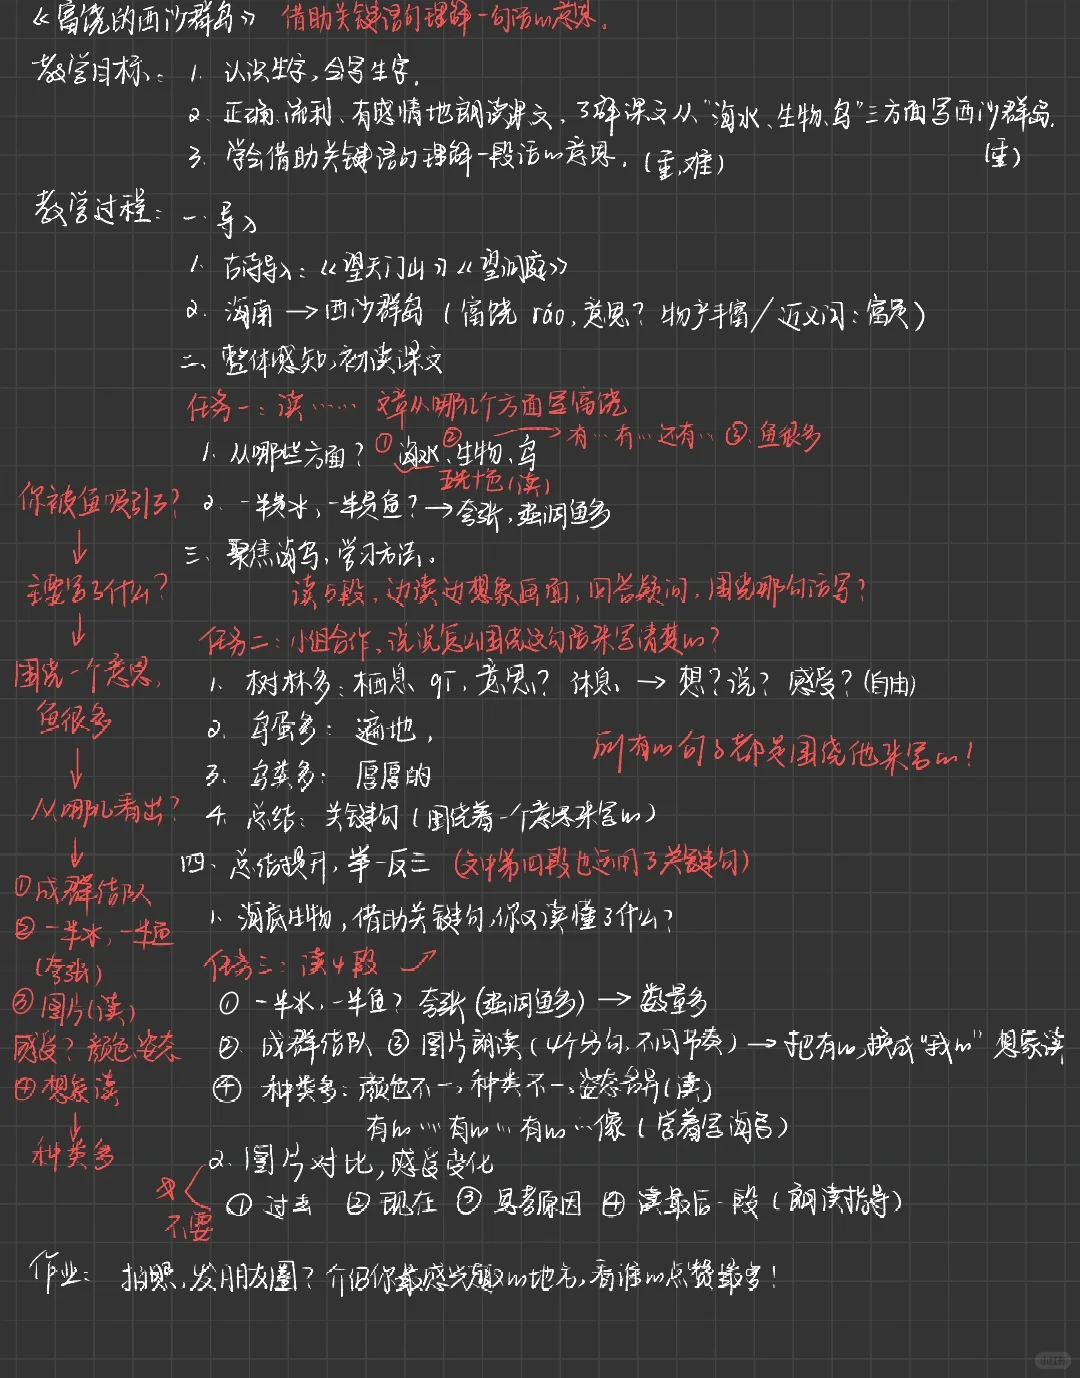 《富饶的西沙群岛》 借助关键语句理解一句话的意思。
教学目标：1. 认识生字，会写生字.
2. 正确、流利、有感情地朗读课文，了解课文从"海水、生物、鸟"三方面写西沙群岛.
(重)
3. 学会借助关键语句理解一段话的意思.（重,难）
教学过程：一.导入
1. 古诗导入：《望天门山》《望洞庭》
2. 海南→西沙群岛（富饶 ráo，意思？物产丰富/近义词：富足）
二、整体感知,初读课文
任务一：读…… 文章从哪几个方面写富饶
1. 从哪些方面？①海水、②生物、鸟 → 有…有…还有… ③.鱼很多
五光十色(读)
2. 一半是水，一半是鱼？→夸张，强调鱼多
三、聚焦海鸟，学习方法。
读5段，边读边想象画面，回答疑问，围绕哪句话写？
任务二：小组合作，说说怎么围绕这句话来写清楚的？
1. 树林多：栖息 qī，意思？休息 → 想？说？感受？(自由)
2. 鸟蛋多：遍地，
3. 鸟类多：厚厚的
所有的句子都是围绕他来写的！
4. 总结：关键句（围绕着一个意思来写的）
四、总结提升，举一反三（文中第四段也运用了关键句）
1. 海底生物，借助关键句,你又读懂了什么？
任务三：读4段
① 一半水，一半鱼？夸张(强调鱼多)→数量多
② 成群结队 ③ 图片朗读(4个分句，不同节奏)→把有的,换成"我的"想象读
④ 种类多：颜色不一、种类不一、姿态各异(读)
有的…有的…有的…像（学着写海岛）
2. 图片对比，感受变化
① 过去 ② 现在 ③ 思考原因 ④ 读最后一段（朗读指导）
不要
作业：拍照，发朋友圈？介绍你最感兴趣的地方，看谁的点赞最多！
你被鱼吸引了？
↓
主要写了什么？
↓
围绕一个意思，
鱼很多
↓
从哪儿看出？
↓
①成群结队
②一半水，一半鱼
(夸张)
③图片(读)
感受？颜色,姿态
④想象读
↓
种类多
小红书